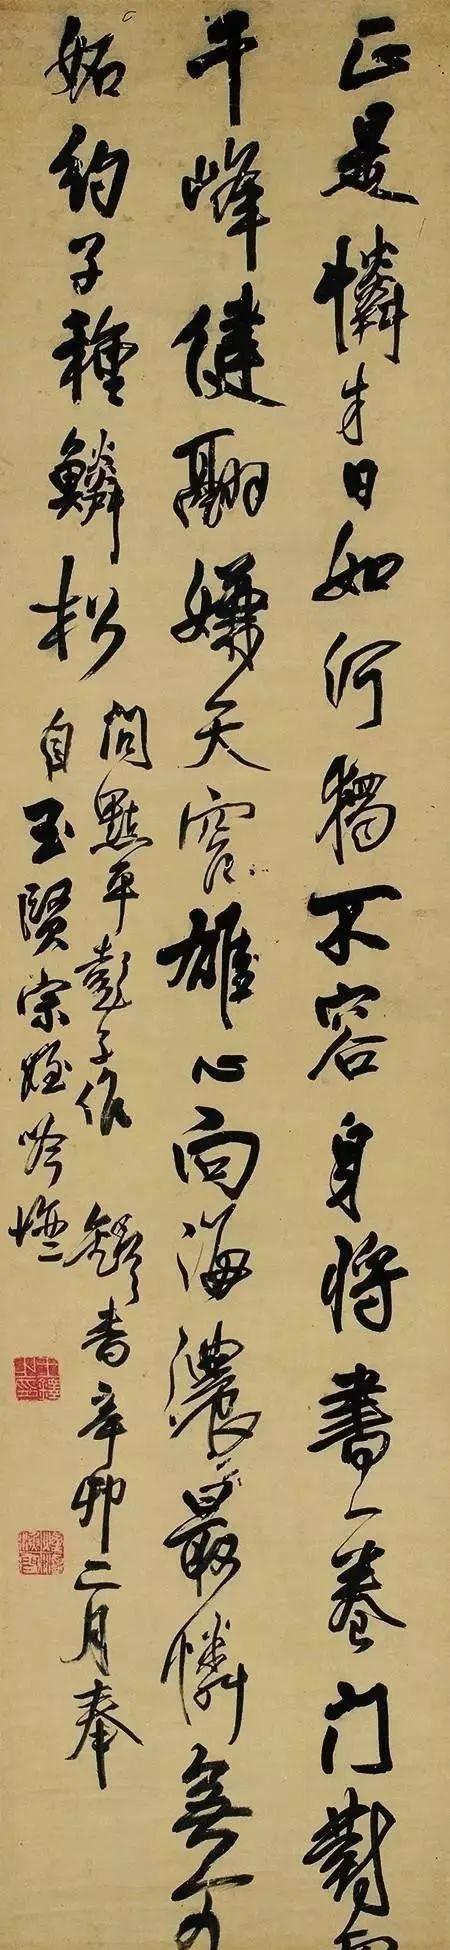 正是憐才日如何獨不容身將書一卷門對
千峰健翮嫌天窄雄心向海濃最憐無可
妬約子種鱗松
問點平彭子作 鐸書辛卯二月奉
自玉賢宗姪吟壇